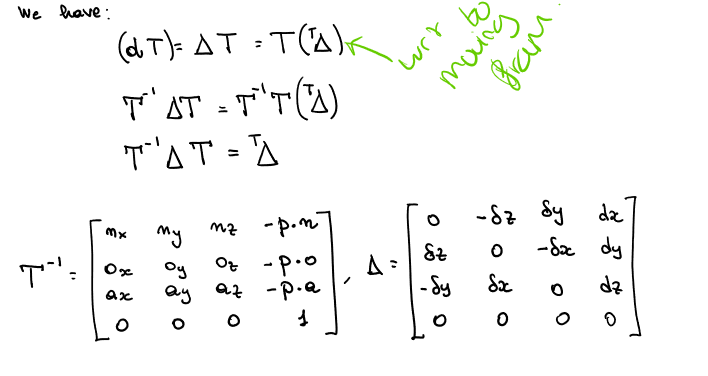 We have:
(dT) = ΔT = T(ᵀΔ) ← wrt to moving fram
T⁻¹ ΔT = T⁻¹T(ᵀΔ)
T⁻¹ΔT = ᵀΔ
T⁻¹ = [nx ny nz -p·n; ox oy oz -p·o; ax ay az -p·a; 0 0 0 1], Δ = [0 -δz δy dx; δz 0 -δx dy; -δy δx 0 dz; 0 0 0 0]